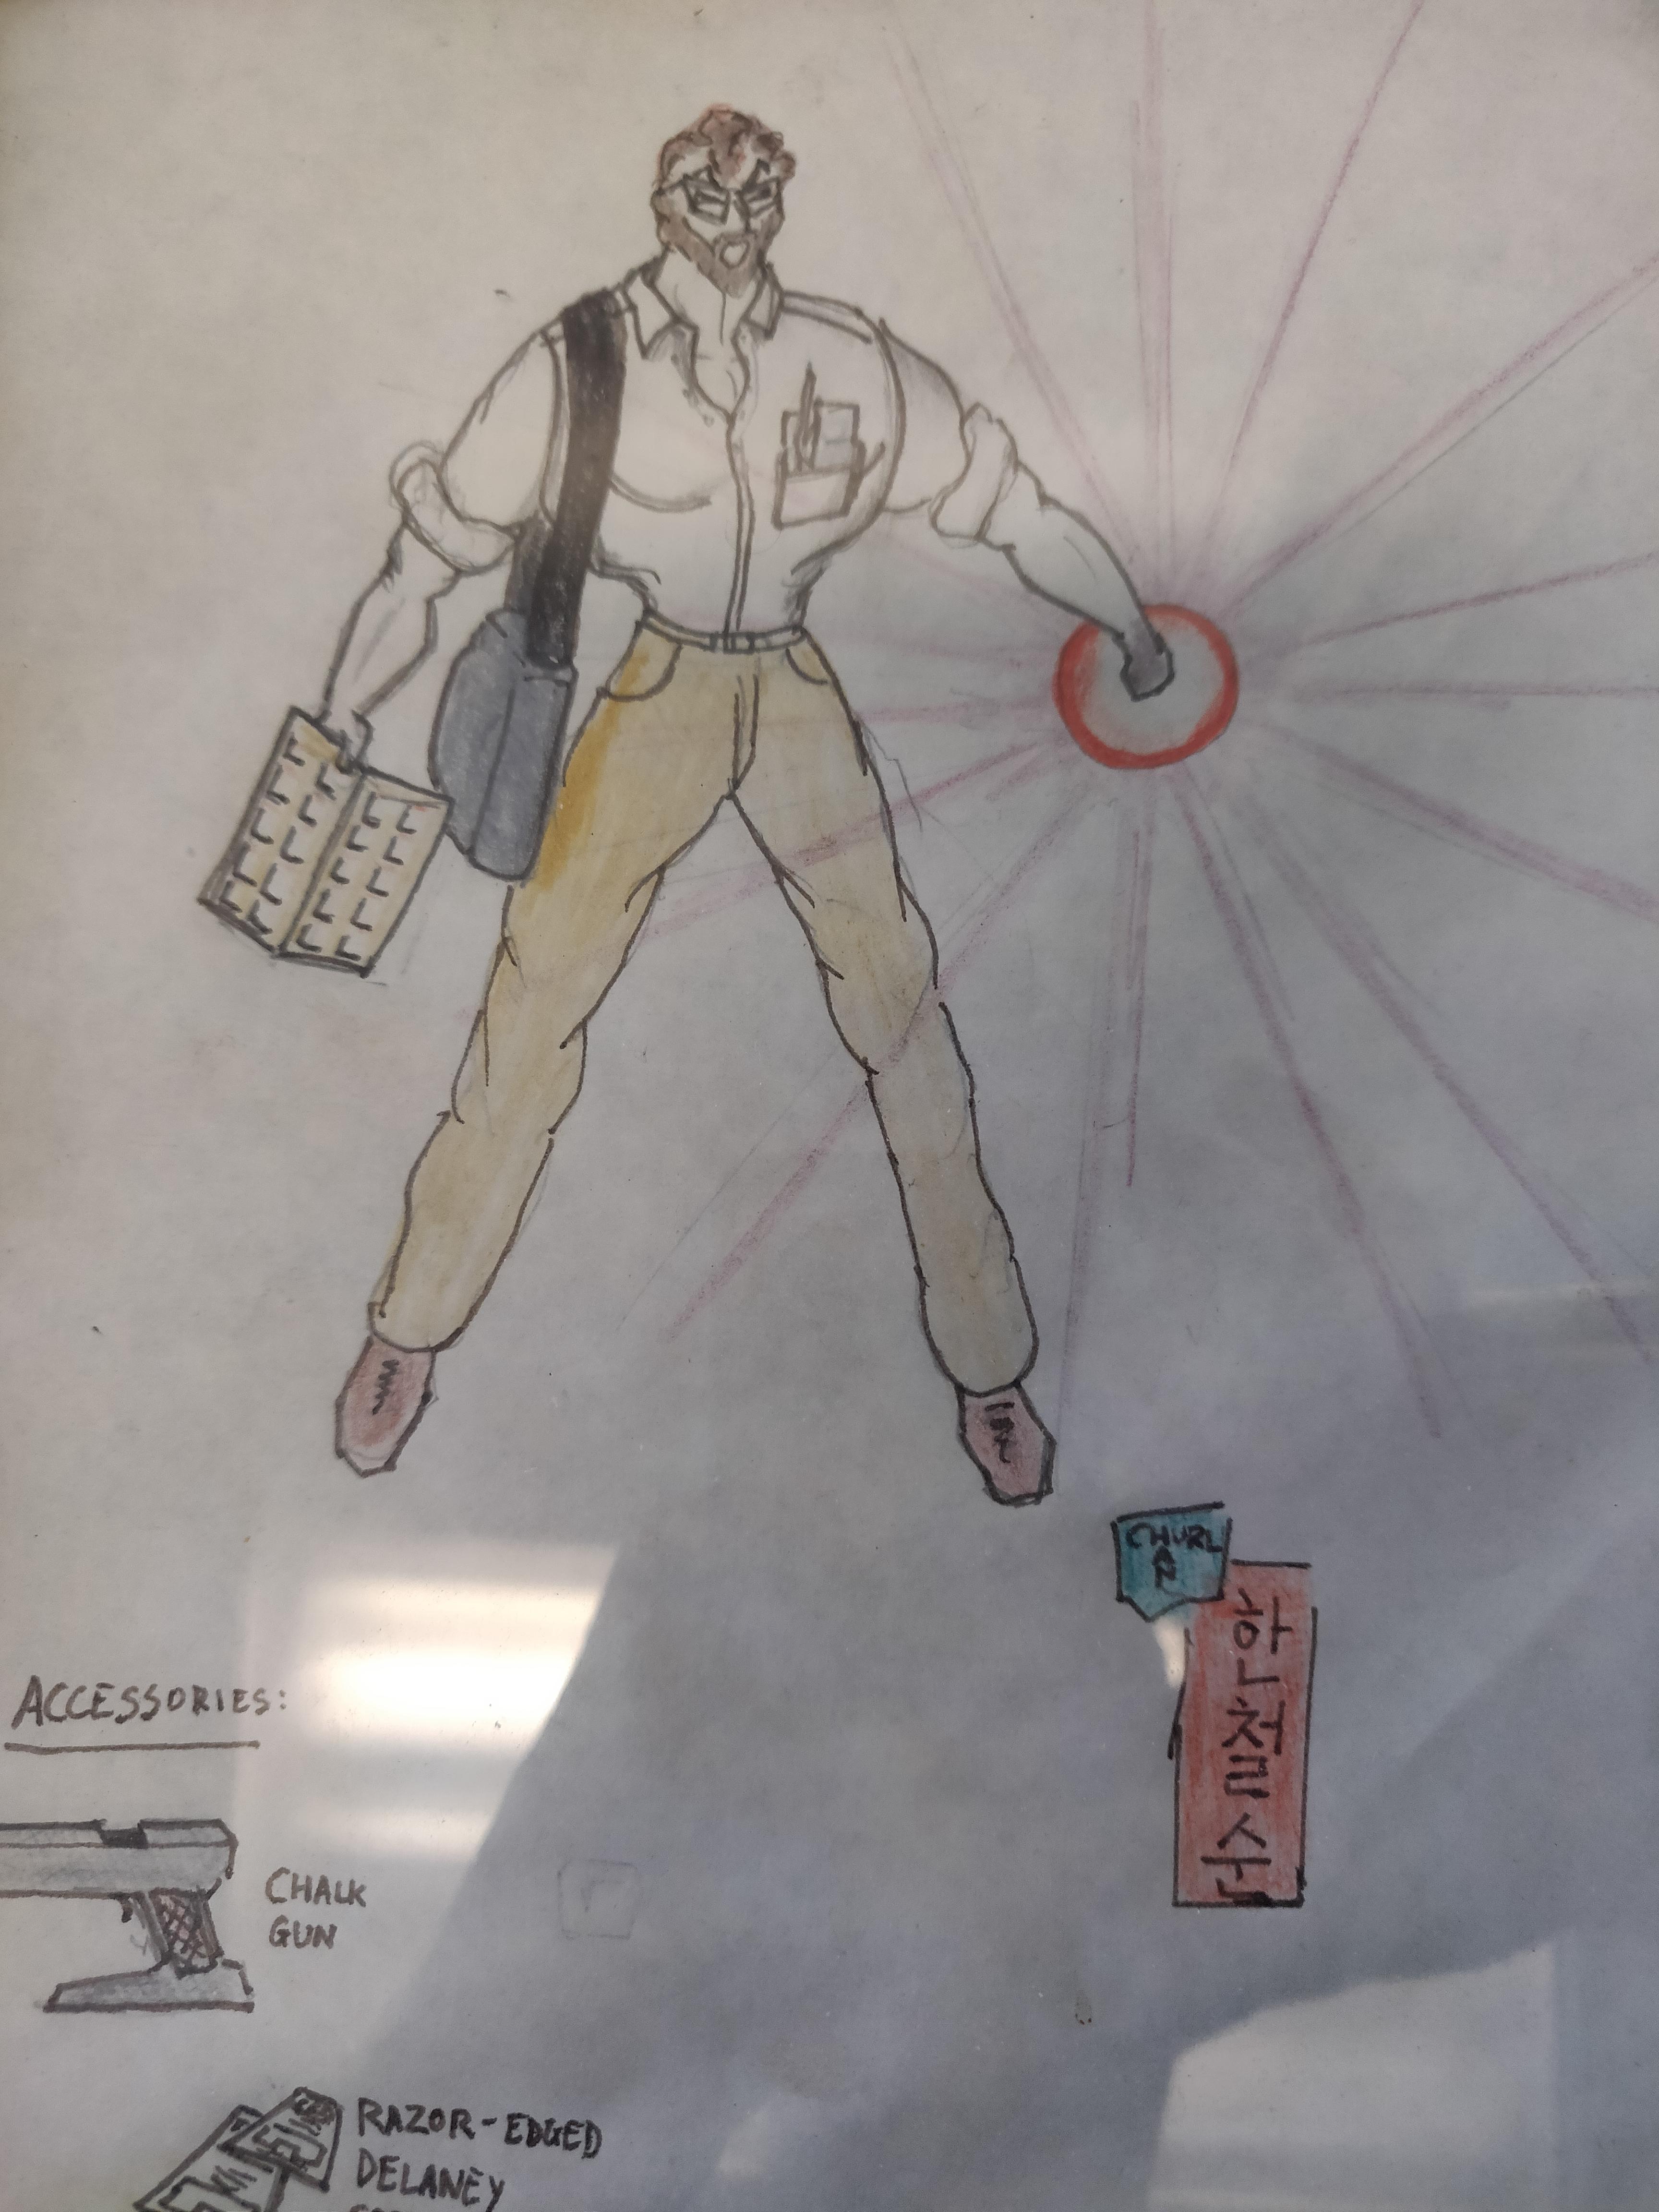 ACCESSORIES:
CHALK
GUN
RAZOR-EDGED
DELANEY
CHURL
한철수